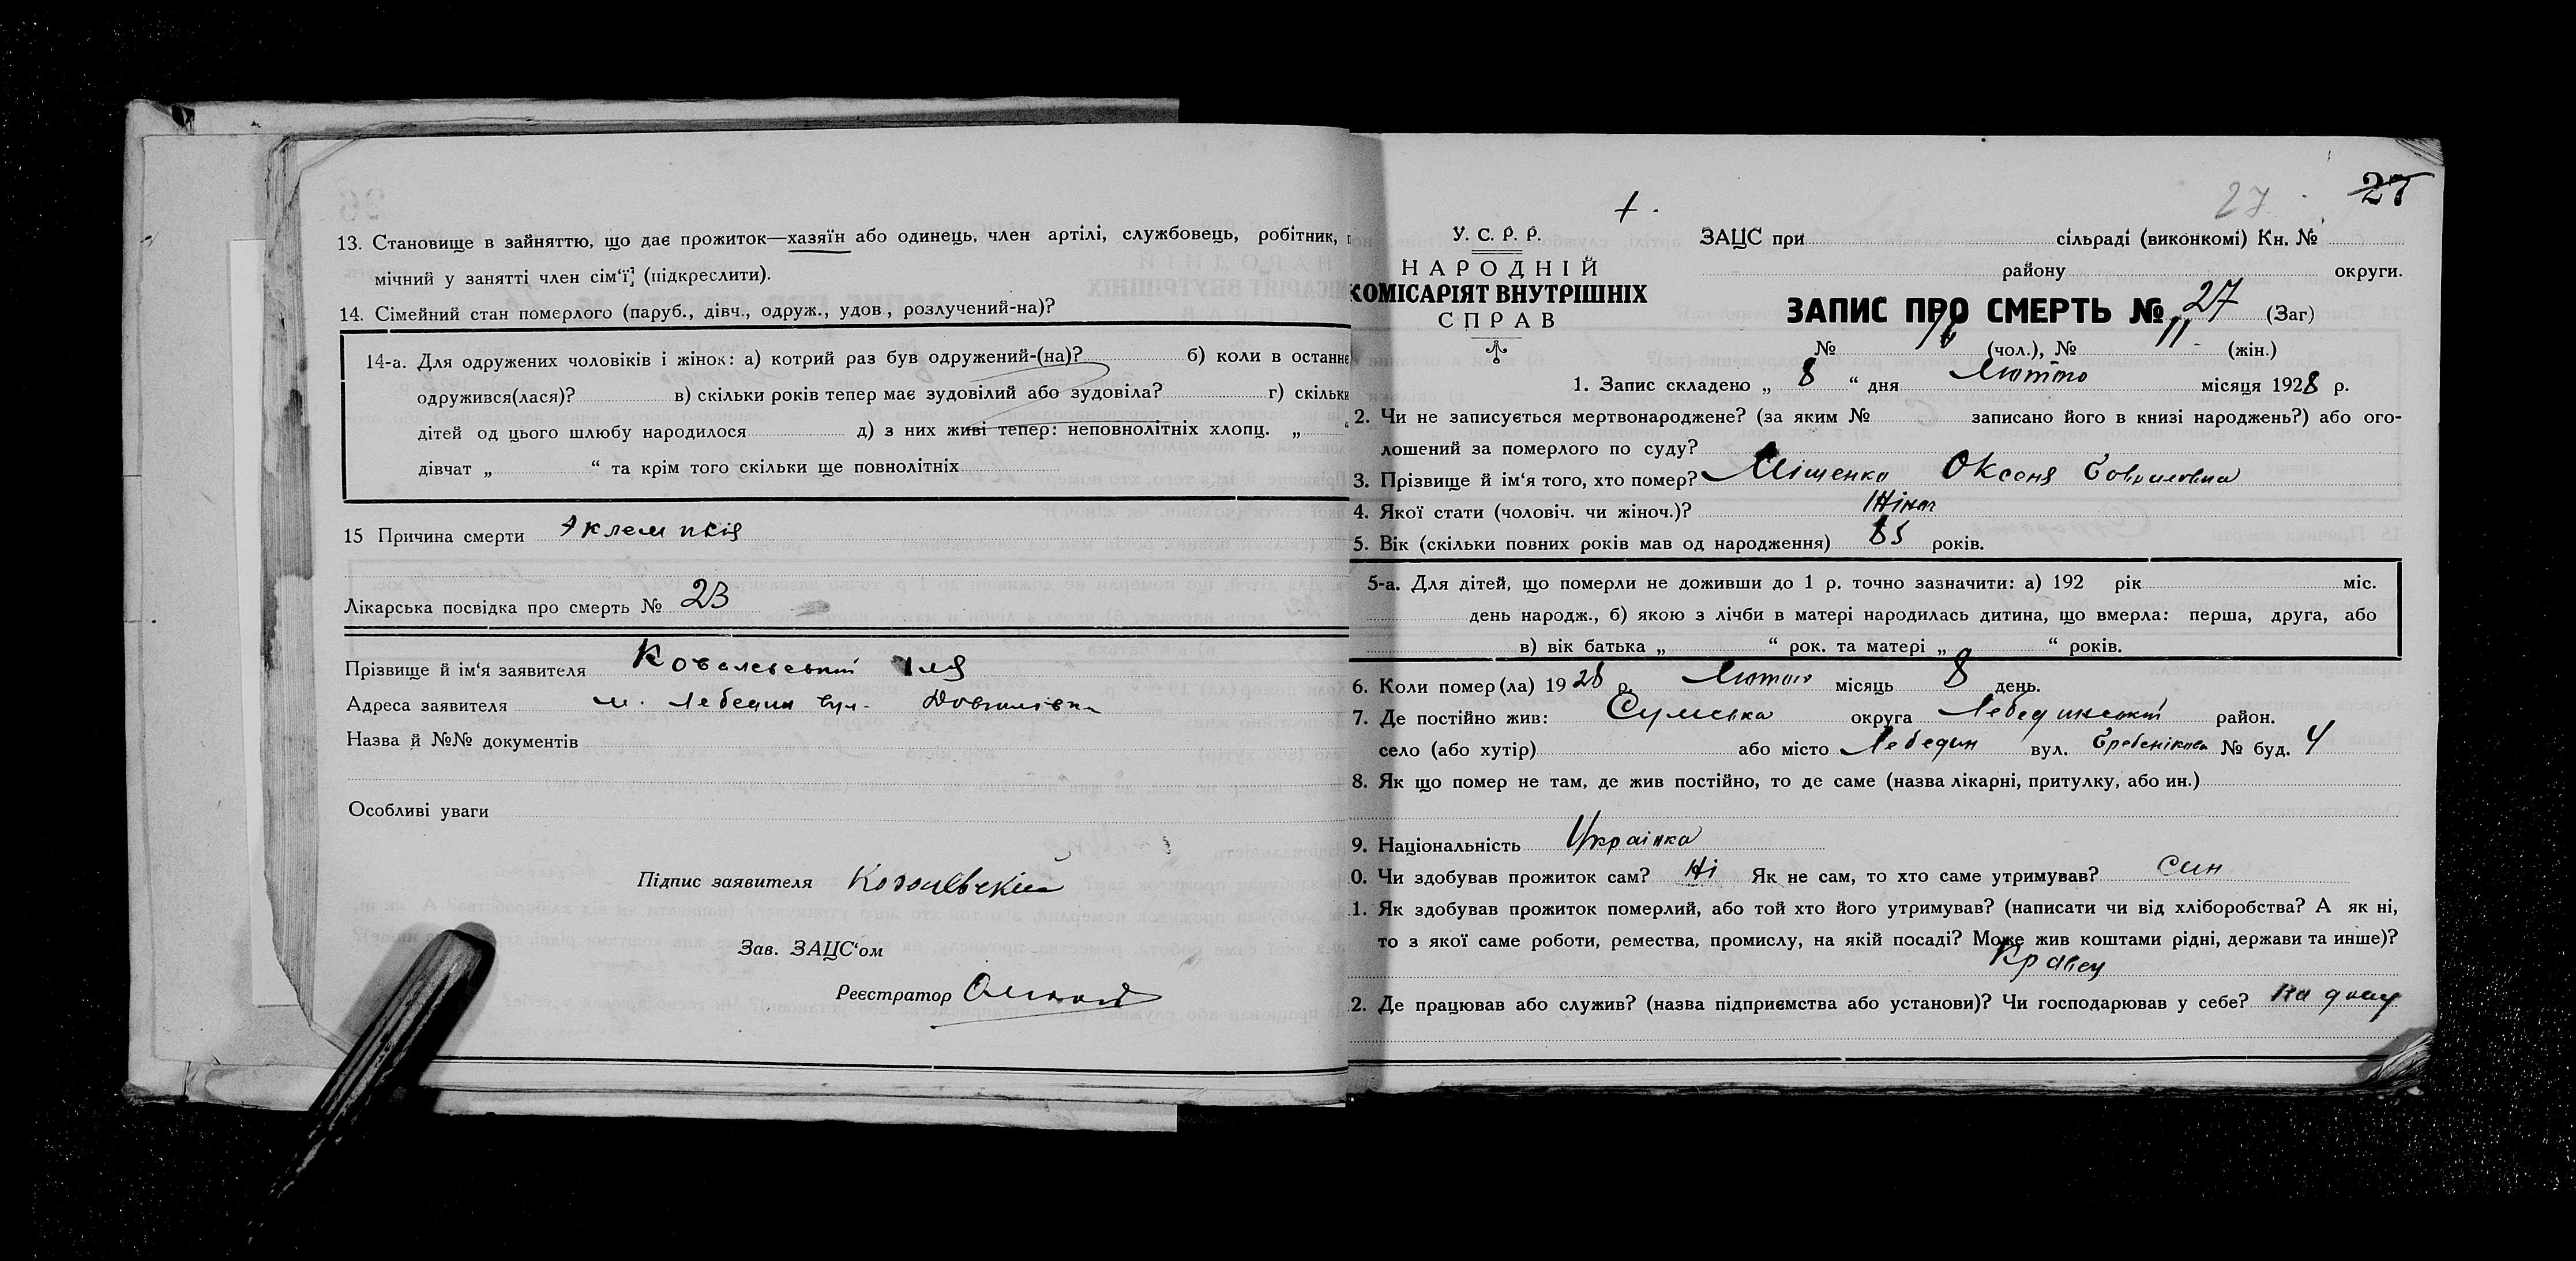 13. Становище в зайняттю, що дає прожиток—хазяїн або одинець, член артілі, службовець, робітник, п
мічний у занятті член сім‘ї, (підкреслити).
14. Сімейний стан померлого (паруб., дівч., одруж., удов., розлучений-на)?
14-а. Для одружених чоловіків і жінок: а) котрий раз був одружений-(на)? б) коли в останнє
одружився(лася)? в) скільки років тепер має зудовілий або зудовіла? г) скільки
дітей од цього шлюбу народилося д) з них живі тепер: неповнолітніх хлопц. „ “
дівчат „ “ та крім того скільки ще повнолітніх
15 Причина смерти Эклемпсія
Лікарська посвідка про смерть № 23
Прізвище й ім‘я заявителя Ковалевський Іля
Адреса заявителя м. Лебедин вул.
Назва й №№ документів
Особливі уваги
Підпис заявителя Ковалевский
Зав. ЗАЦС‘ом
Реєстратор
27
27
У. С. Р. Р.
НАРОДНІЙ
КОМІСАРІЯТ ВНУТРІШНІХ
СПРАВ
ЗАЦС при сільраді (виконкомі) Кн. №
району округи.
ЗАПИС ПРО СМЕРТЬ № 27 (Заг)
№ (чол.), № 11 (жін.)
1. Запис складено „ 8 “ дня Лютого місяця 1928 р.
2. Чи не записується мертвонароджене? (за яким № записано його в книзі народжень?) або ого-
лошений за померлого по суду?
3. Прізвище й ім‘я того, хто помер? Міщенко Оксеня Гавриловна
4. Якої стати (чоловіч. чи жіноч.)? Жіноч
5. Вік (скільки повних років мав од народження) 85 років.
5-а. Для дітей, що померли не доживши до 1 р. точно зазначити: а) 192 рік міс.
день народж., б) якою з лічби в матері народилась дитина, що вмерла: перша, друга, або
в) вік батька „ “ рок. та матері „ “ років.
6. Коли помер(ла) 1928 р. Лютого місяць 8 день.
7. Де постійно жив: Сумська округа Лебединський район.
село (або хутір) або місто Лебедин вул. Гребенікова № буд. 4
8. Як що помер не там, де жив постійно, то де саме (назва лікарні, притулку, або ин.)
9. Національність Українка
0. Чи здобував прожиток сам? Ні Як не сам, то хто саме утримував? Син
1. Як здобував прожиток померлий, або той хто його утримував? (написати чи від хліборобства? А як ні,
то з якої саме роботи, ремества, промислу, на якій посаді? Може жив коштами рідні, держави та инше)?
Кравец
2. Де працював або служив? (назва підприємства або установи)? Чи господарював у себе? на дому